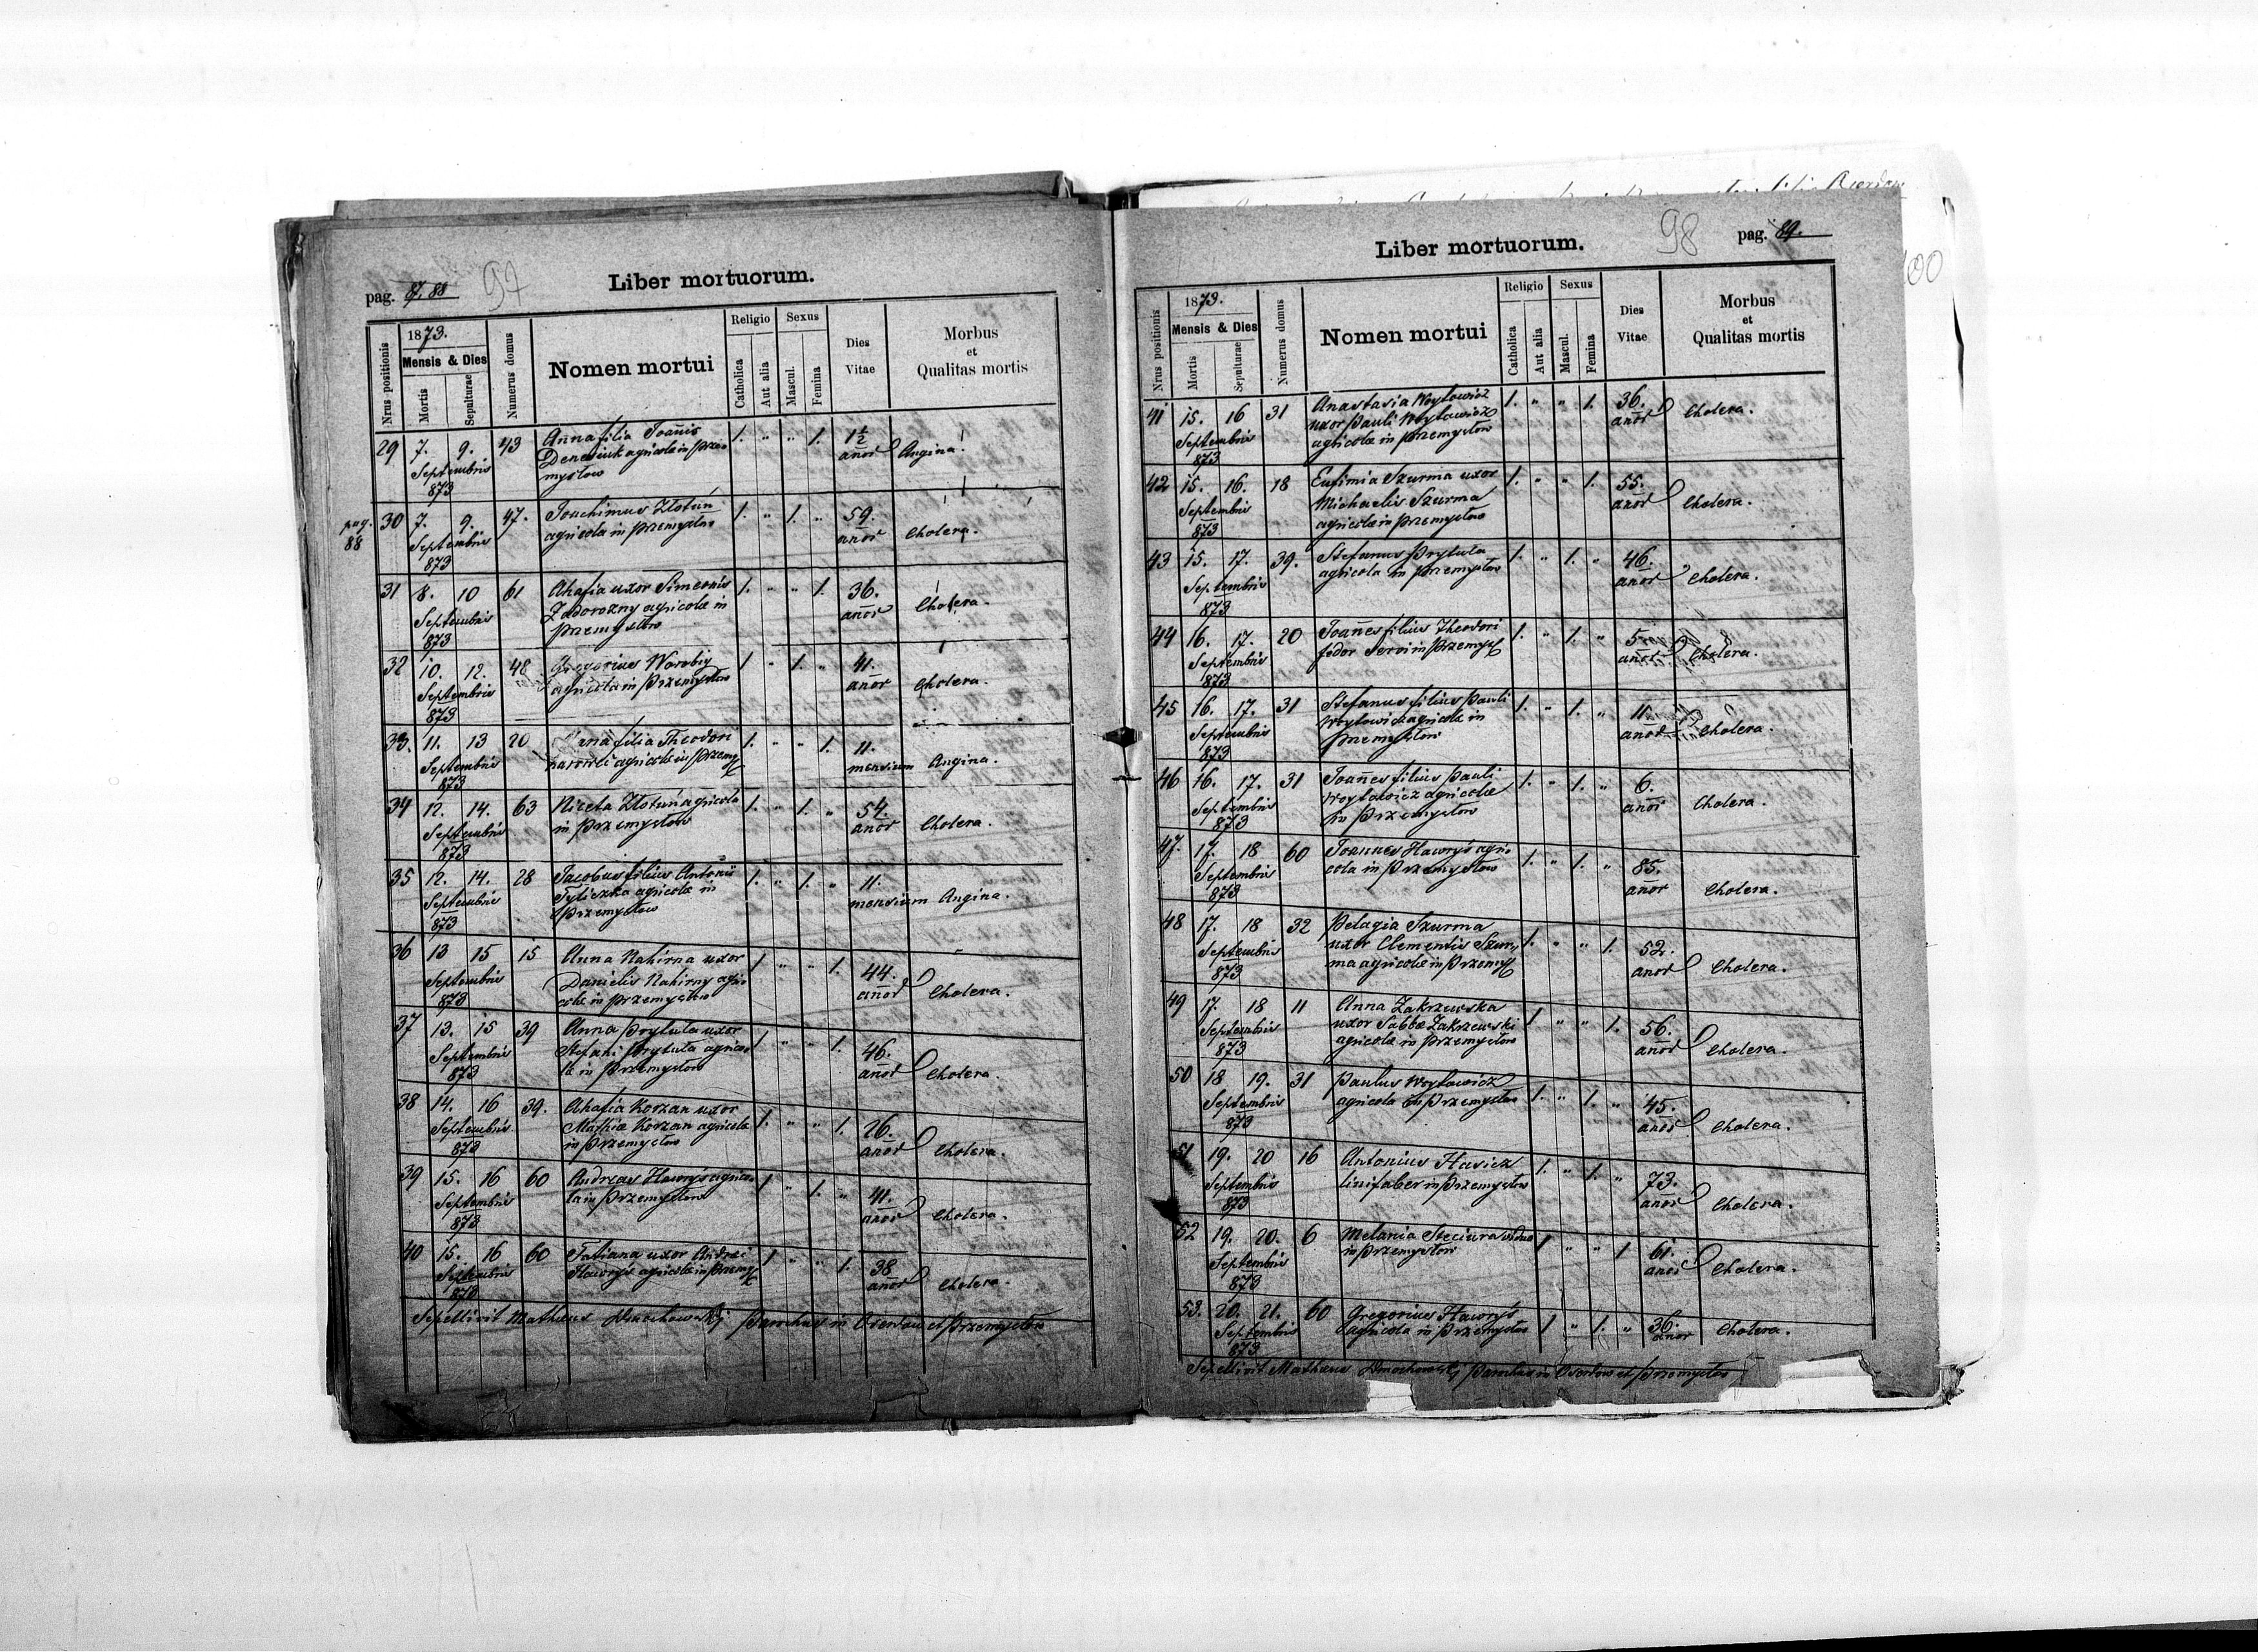 pag. 87. 88
97
Liber mortuorum.
Nrus positionis
1873.
Mensis & Dies
Mortis
Sepulturae
Numerus domus
Nomen mortui
Religio
Catholica
Aut alia
Sexus
Mascul.
Femina
Dies
Vitae
Morbus
et
Qualitas mortis
29 7. 9. 43 Anna filia Joannis 1. " " 1. 1½
Septembris agricolae in Prze- anor Angina.
873 mysłow
pag. 88
30 7. 9. 47. Joachimus Złotuń 1. " 1. " 59.
Septembris agricola in Przemysłow anor Cholera.
873
31 8. 10 61 Ahafia uxor Simeonis 1. " " 1. 36.
Septembris Zadorozny agricolae in anor Cholera.
873 Przemysłow
32 10. 12. 48 Gregorius Worobij 1 " 1. " 41.
Septembris agricola in Przemysłow anor Cholera.
873
33. 11. 13 20 filia Theodori 1. " " 1. 11.
Septembris agricolae in Przemys mensium Angina.
873
34 12. 14. 63 Niceta Złotuń agricola 1. " 1. " 54.
Septembris in Przemysłow anor Cholera.
873
35 12. 14. 28 Jacobus filius Antonii 1. " 1. " 11.
Septembris Tyliczka agricolae in mensium Angina.
873 Przemysłow
36 13 15 15 Anna Nahirna uxor 1 " " 1. 44.
Septembris Danielis Nahirny agri- anor Cholera.
873 colae in Przemysłow
37 13. 15 39 Anna Prytuła uxor 1 " " 1. 46.
Septembris Stefani Prytuła agrico- anor Cholera.
873 lae in Przemysłow
38 14. 16 39. Ahafia Korzan uxor 1. " " 1. 26.
Septembris Mathiae Korzan agricolae anor Cholera.
873 in Przemysłow
39 15. 16 60 Andreas Hawryś agrico- 1 " 1. " 41.
Septembris la in Przemysłow anor Cholera.
873
40 15. 16 60 Tatiana uxor Andreae 1 " " 1. 38
Septembris Hawryś agricolae in Przemys anor Cholera.
873
Sepellivit Mathaeus Parochus in et Przemysłow
98
pag. 89.
Liber mortuorum.
Nrus positionis
1873.
Mensis & Dies
Mortis
Sepulturae
Numerus domus
Nomen mortui
Religio
Catholica
Aut alia
Sexus
Mascul.
Femina
Dies
Vitae
Morbus
et
Qualitas mortis
100
41 15. 16 31 Anastasia Woytowicz 1. " " 1. 36.
Septembris uxor Pauli Woytowicz anor Cholera.
873 agricolae in Przemysłow
42 15. 16. 18 Eufimia Szurma uxor 1. " " 1. 55.
Septembris Michaelis Szurma anor Cholera.
873 agricolae in Przemysłow
43 15. 17. 39. Stefanus Prytuła 1. " 1. " 46.
Septembris agricola in Przemysłow anor Cholera.
873
44 16. 17. 20 Joannes filius Theodori 1. " 1. " 5
Septembris in Przemys anor Cholera.
873
45 16. 17. 31 Stefanus filius Pauli 1. " 1. " 11.
Septembris Woytowicz agricolae in anor Cholera.
873 Przemysłow
46 16. 17. 31 Joannes filius Pauli 1. " 1. " 6.
Septembris Woytowicz agricolae anor Cholera.
873 in Przemysłow
47. 17. 18 60 Joannes Hawryś agri- 1. " 1. " 85.
Septembris cola in Przemysłow anor Cholera.
873
48 17. 18 32 Pelagia Szurma 1. " " 1. 52.
Septembris uxor Clementis Szur- anor Cholera.
873 ma agricolae in Przemys
49 17. 18 11 Anna Zakrzewska 1 " " 1. 56.
Septembris uxor Sabbae Zakrzewski anor Cholera.
873 agricolae in Przemysłow
50 18 19. 31 Paulus Woytowicz 1. " 1. " 45.
Septembris agricola in Przemysłow anor Cholera.
873
51 19. 20 16 Antonius 1. " 1. " 73.
Septembris linifaber in Przemysłow anor Cholera.
873
52 19. 20. 6 Melania Steciura vidua 1 " " 1 61.
Septembris in Przemysłow anor Cholera.
873
53. 20. 21. 60 Gregorius Hawryś 1 " 1. " 36.
Septembris agricola in Przemysłow anor Cholera.
873
Sepellivit Mathaeus Parochus in et Przemysłow